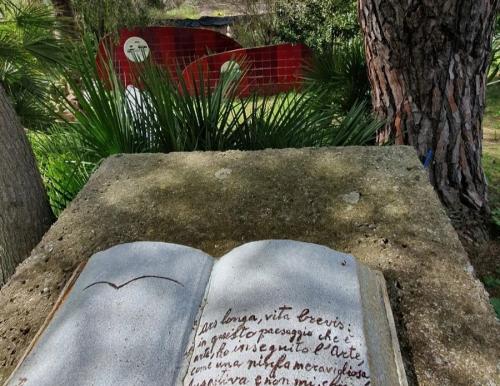 Ars longa, vita brevis:
in questo paesaggio che è
arte, ho inseguito l'Arte
come una ninfa meravigliosa